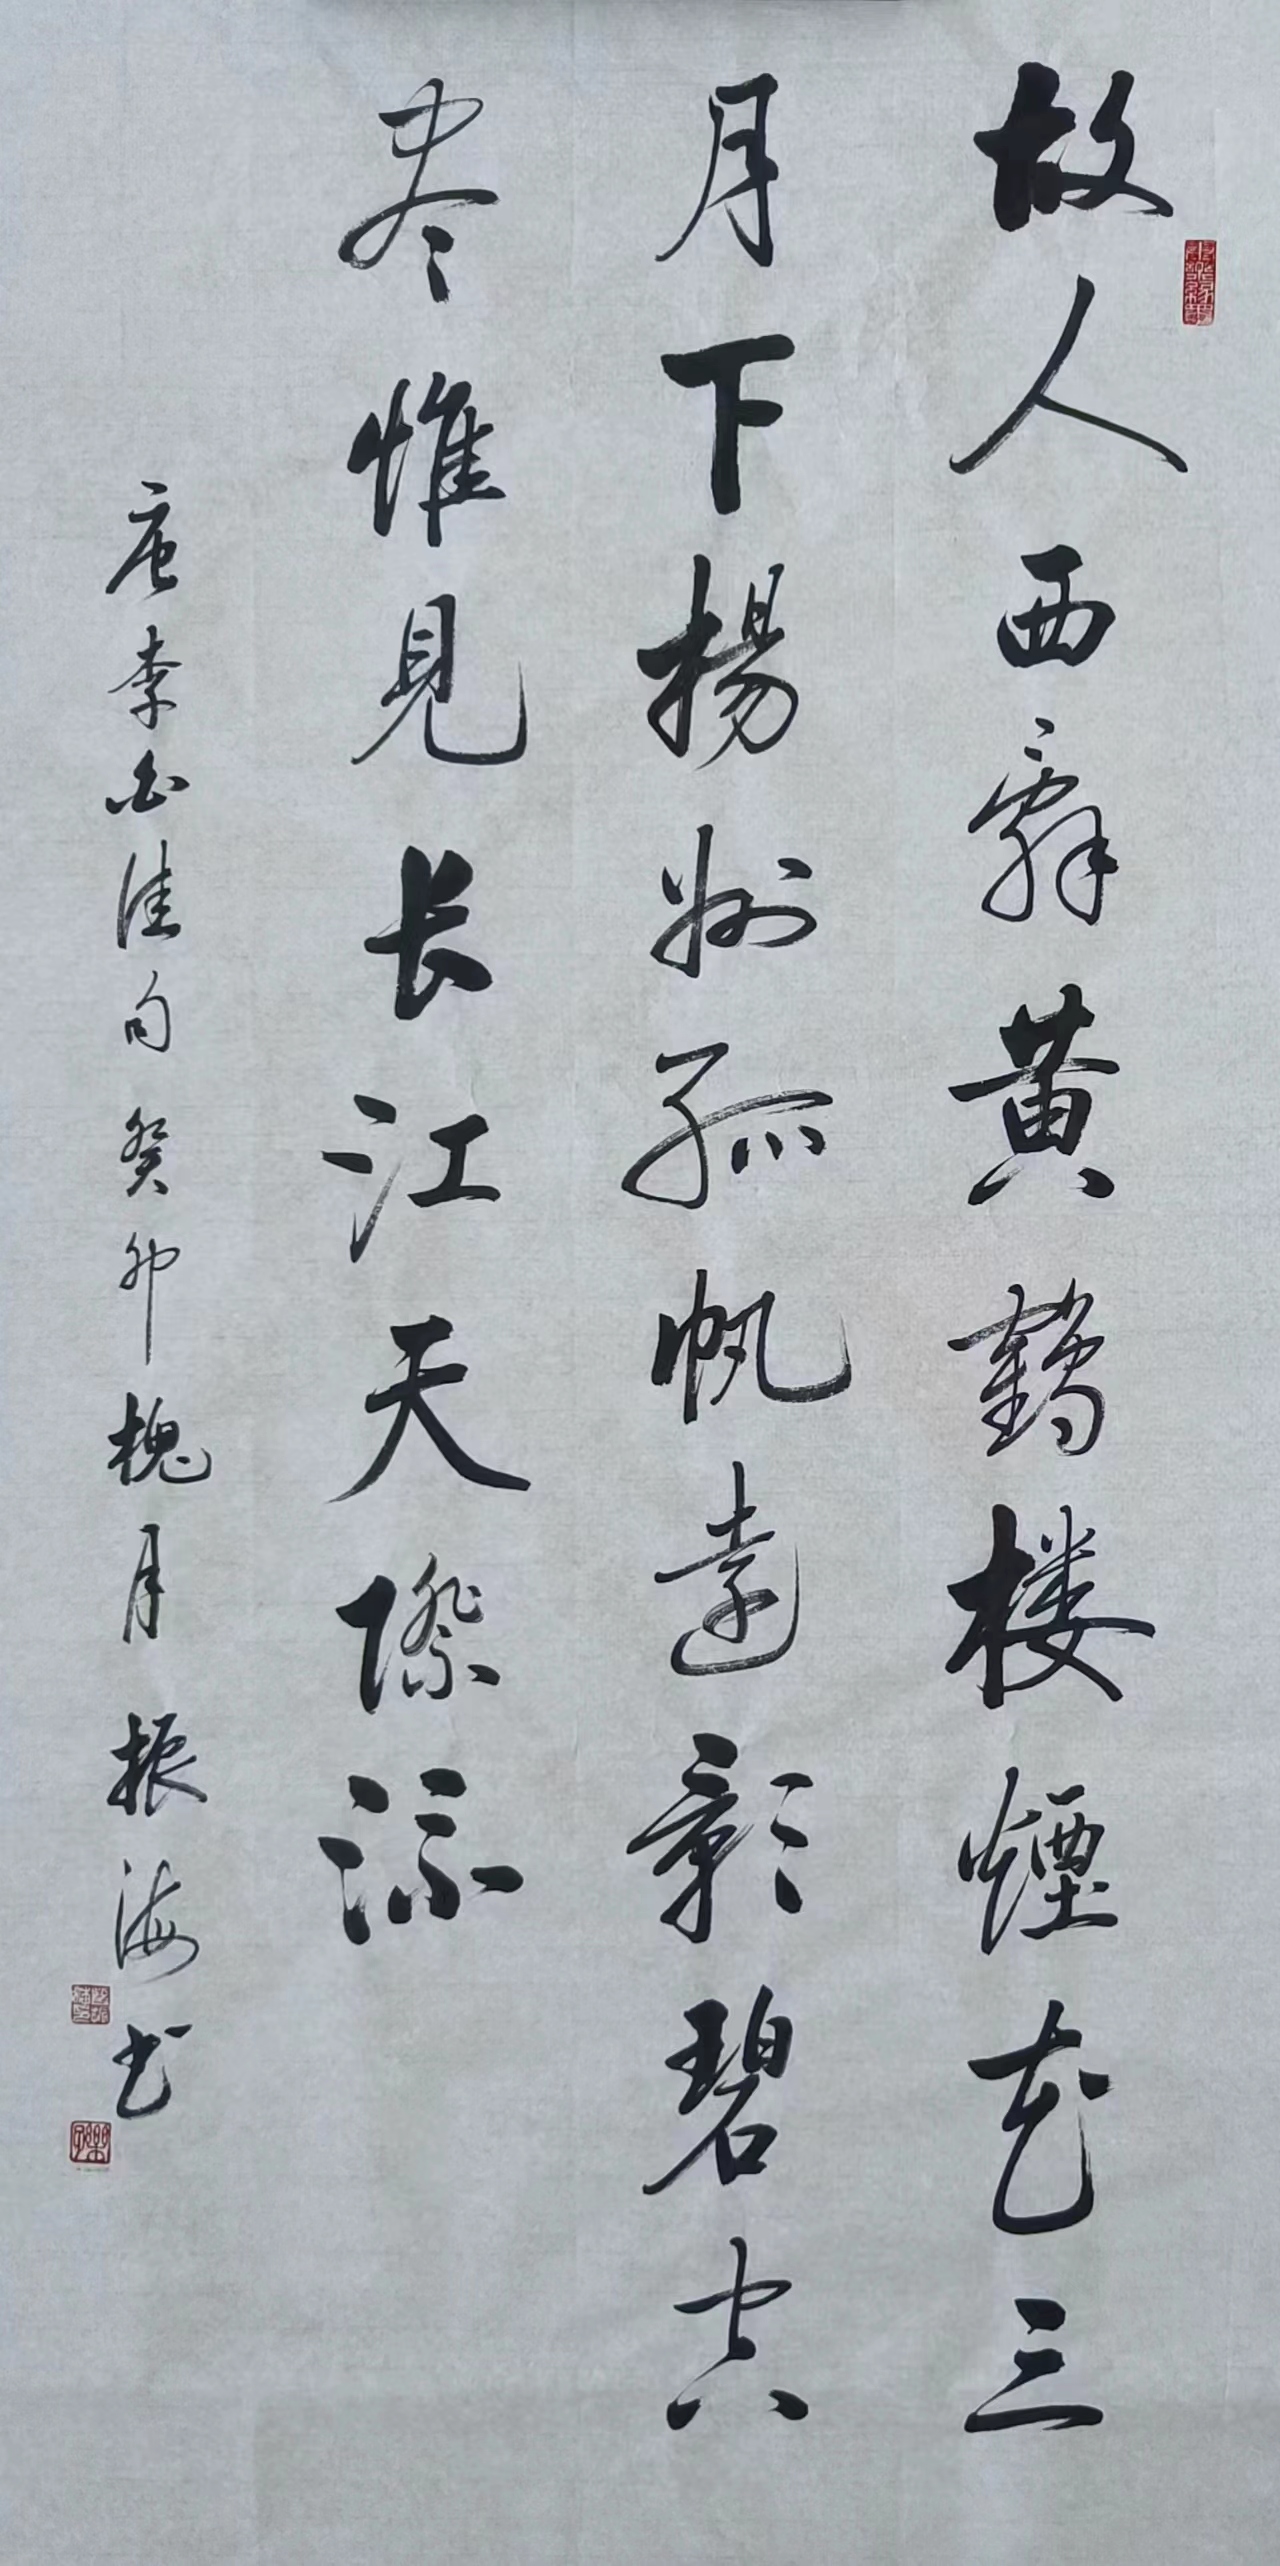 故人西辞黄鹤楼煙花三
月下揚州孤帆遠影碧空
尽惟見长江天際流
唐李白佳句癸卯槐月振海书